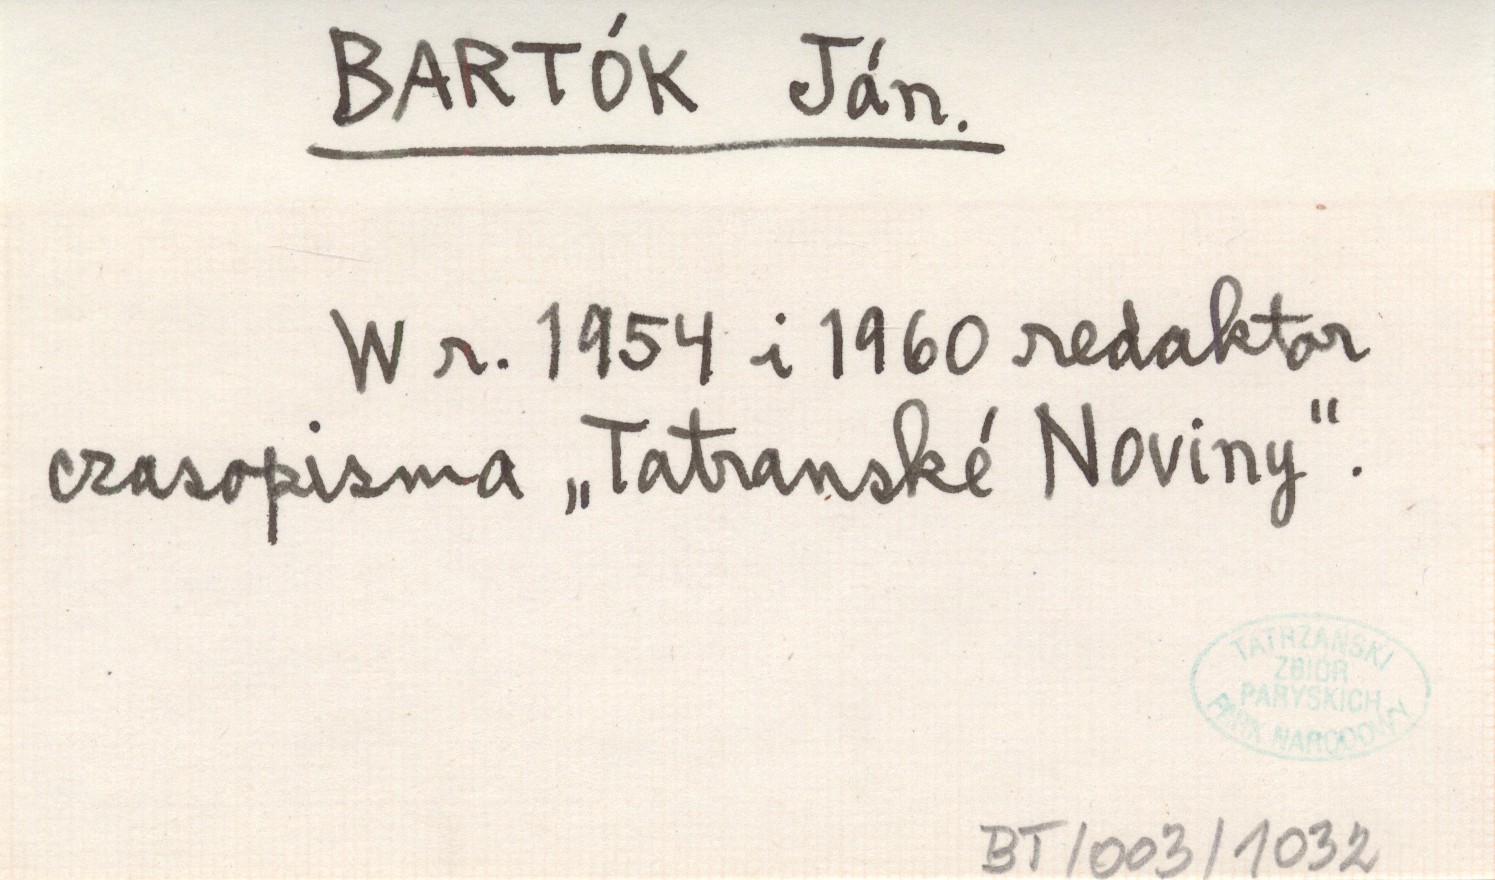 BARTÓK Ján.
W r. 1954 i 1960 redaktor
czasopisma „Tatranské Noviny“.
TATRZAŃSKI
ZBIÓR
PARYSKICH
PARK NARODOWY
BT/003/1032